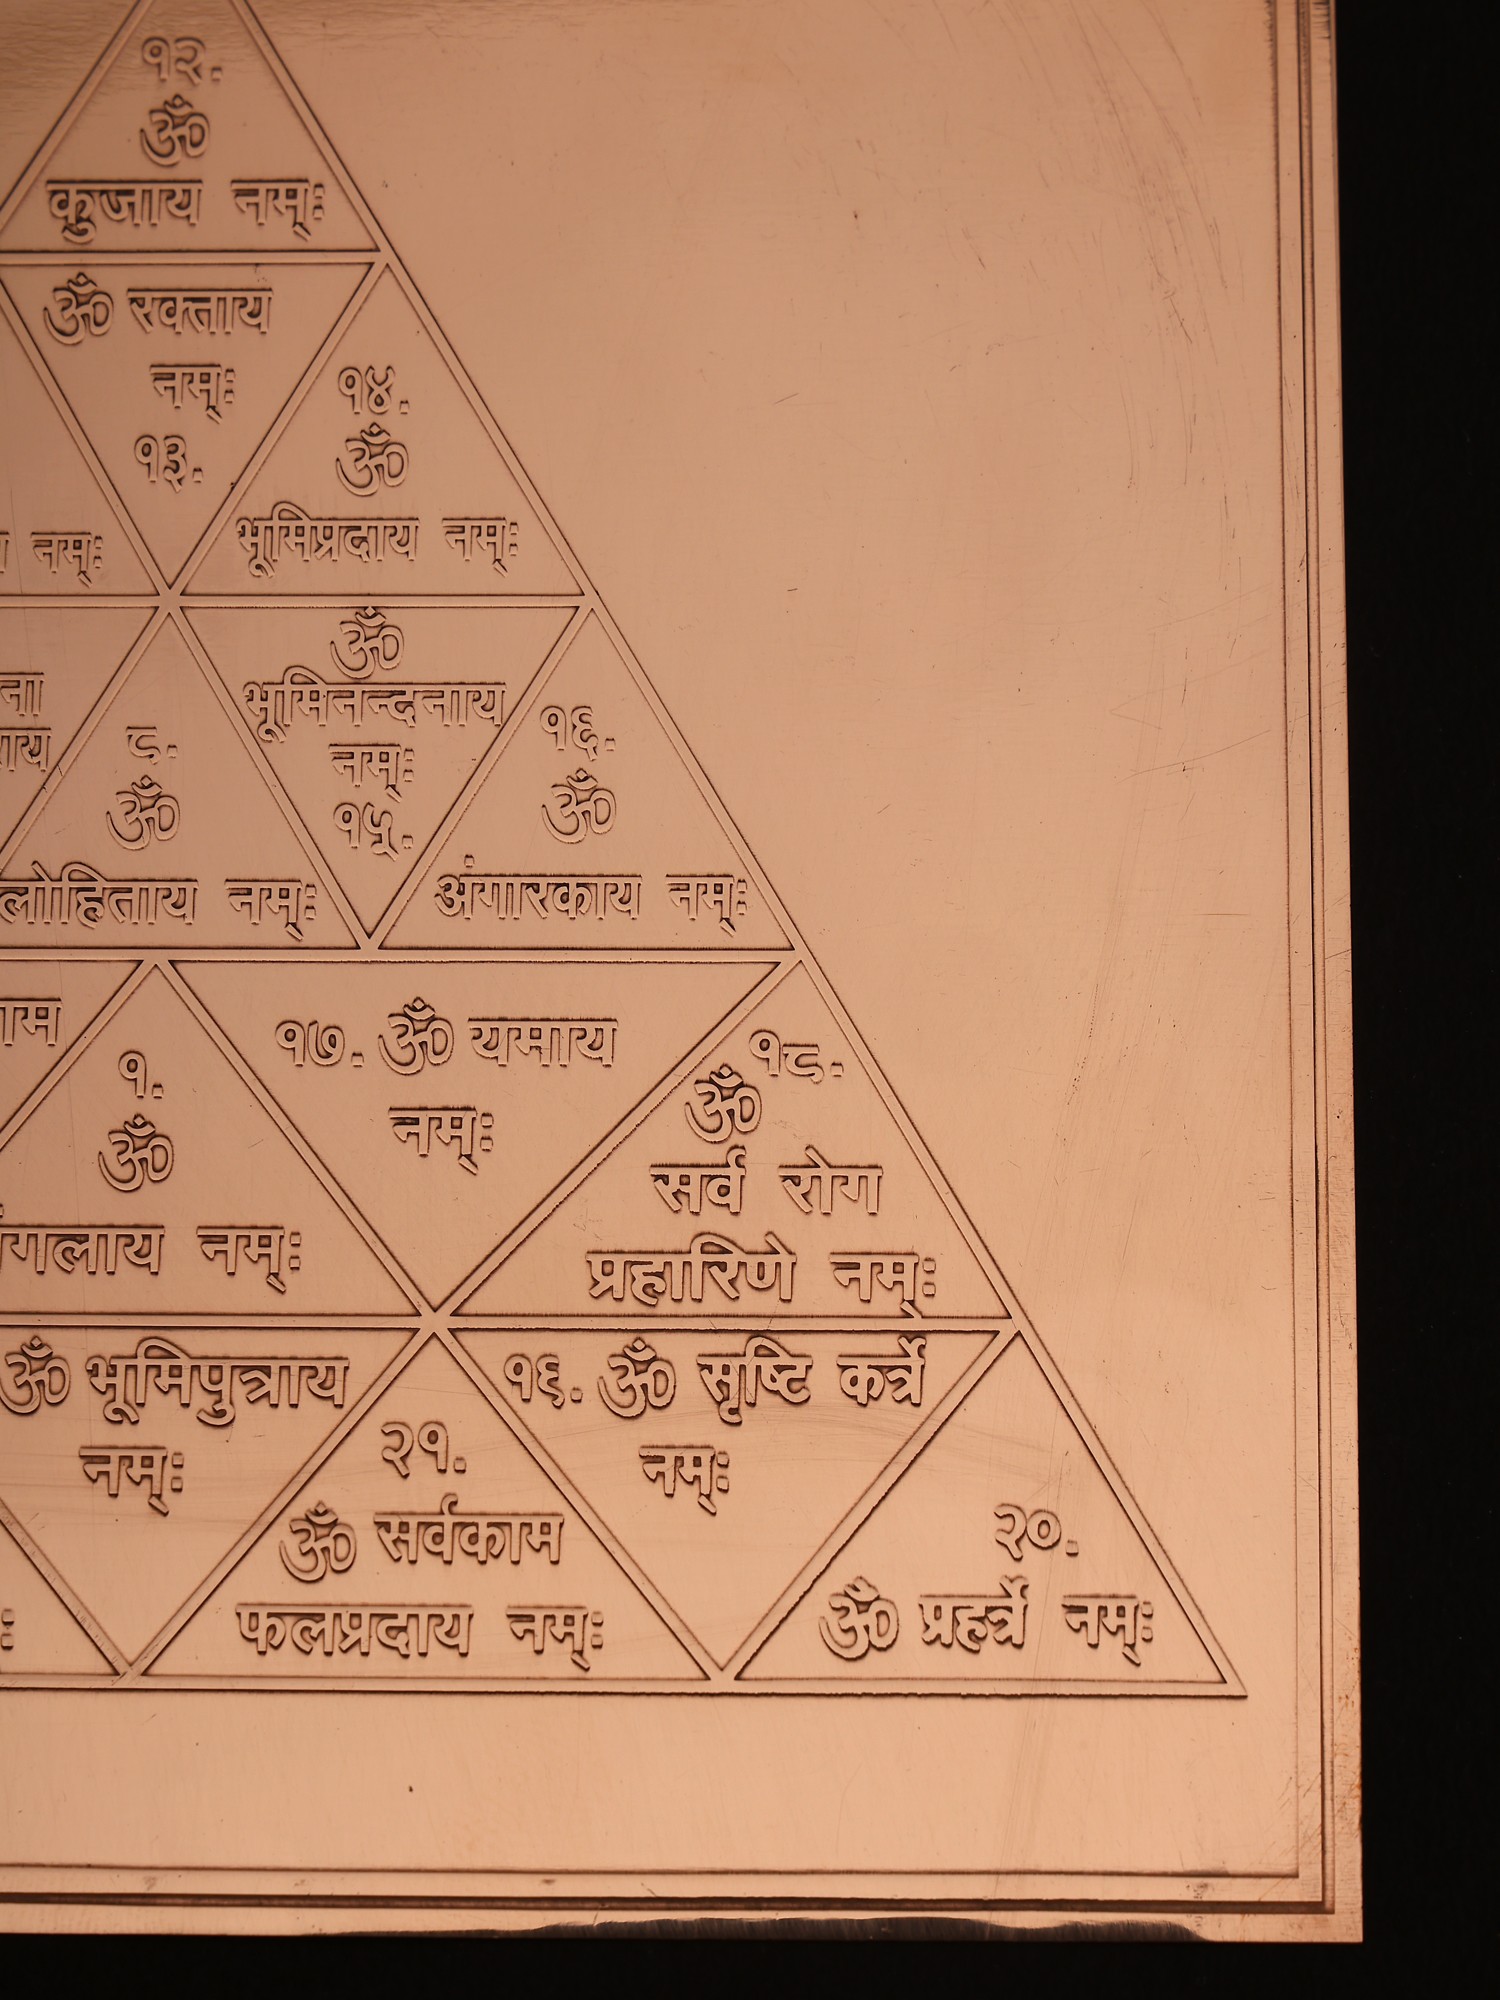 १२.
ॐ
कुजाय नम्ः
ॐ रक्ताय
नम्ः
१३.
१४.
ॐ
भूमिप्रदाय नम्ः
नम्ः
ॐ
भूमिनन्दनाय
नम्ः
१५.
१६.
ॐ
अंगारकाय नम्ः
८.
ॐ
लोहिताय नम्ः
१७. ॐ यमाय
नम्ः
१८.
ॐ
सर्व रोग
प्रहारिणे नम्ः
१.
ॐ
गलाय नम्ः
ॐ भूमिपुत्राय
नम्ः
१९. ॐ सृष्टि कर्त्रे
नम्ः
२१.
ॐ सर्वकाम
फलप्रदाय नम्ः
२०.
ॐ प्रहर्त्रे नम्ः